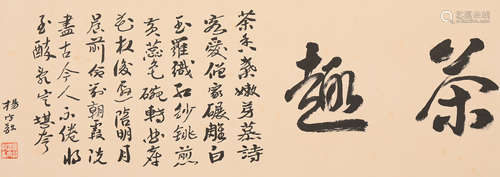 茶趣
茶香葉嫩芽慕詩
客愛僧家碾雕白
玉羅織紅紗銚煎
黄蕊色碗轉曲塵
花夜後邀陪明月
晨前命對朝霞洗
盡古今人不倦將
至醉